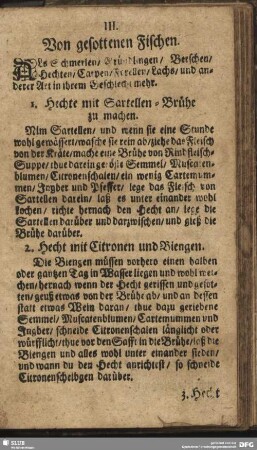 III.
Von gesottenen Fischen.
ALs Schmerlen/ Gründlingen/ Berschen/
Hechten/ Carpen/ Forellen/ Lachs/ und an-
derer Art in ihrem Geschlecht mehr.
1. Hechte mit Sartellen-Brühe
zu machen.
Nim Sartellen/ und wenn sie eine Stunde
wohl gewässert/ wasche sie rein ab/ ziehe das Fleisch
von der Gräte/ mache eine Brühe von Rindfleisch-
Suppe/ thue darein geriebne Semmel/ Muscaten-
blumen/ Citronenschalen/ ein wenig Cartemum-
men/ Ingber und Pfeffer/ lege das Fleisch von
Sartellen darein/ laß es unter einander wohl
kochen/ richte hernach den Hecht an/ lege die
Sartellen darüber und darzwischen/ und gieß die
Brühe darüber.
2. Hecht mit Citronen und Biengen.
Die Biengen müssen vorhero einen halben
oder gantzen Tag in Wasser liegen und wohl wei-
chen/ hernach wenn der Hecht gerissen und gesot-
ten/ geuß etwas von der Brühe ab/ und an dessen
statt etwas Wein daran/ thue dazu geriebene
Semmel/ Muscatenblumen/ Cartemummen und
Ingber/ schneide Citronenschalen länglicht oder
würfflicht/ thue vor den Safft in die Brühe/ loß die
Biengen und alles wohl unter einander sieden/
und wann du den Hecht anrichtest/ so schneide
Citronenscheibgen darüber.
3. Hecht
SLUB
DFG